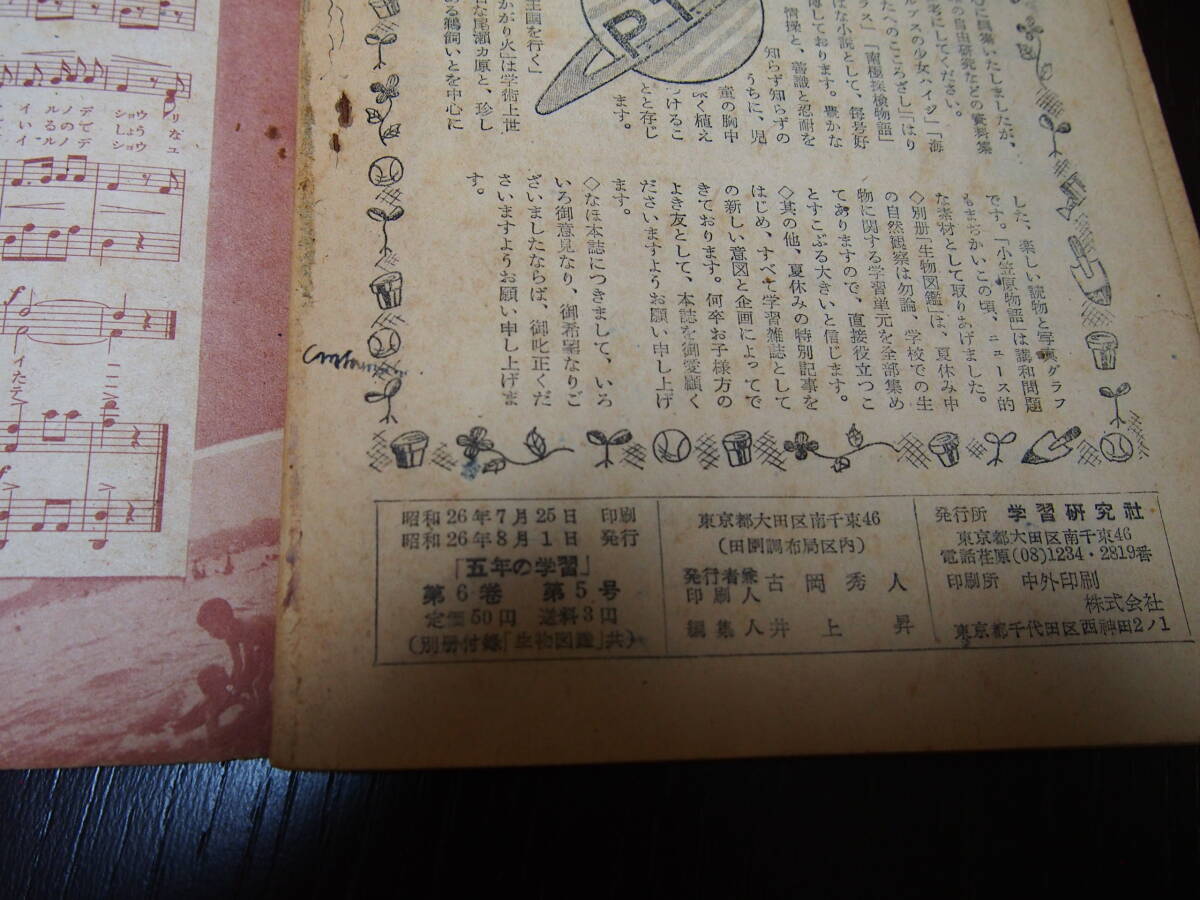 ひに収集いたしましたが、
の自由研究などの資料集
考にしてください。
ルプスの少女ハイジ」「海
たへのこころざし」「はり
ラス」「南極探検物語」
ばな小説として、毎号好
博しております。豊かな
情操と、善識と忍耐を
知らず知らずの
うちに、児
童の胸中
深く植え
つけるこ
とと存じ
ます。
王国を行く」
かがり火」は学術上世
な尾瀬カ原と、珍し
ある鵜飼いとを中心に
PT
した、楽しい読物と写真グラフ
です。「小笠原物語」は講和問題
もまぢかいこの頃、ニュース的
な素材として取りあげました。
◇別册「生物図鑑」は、夏休み中
の自然観察は勿論、学校での生
物に関する学習単元を全部集め
てありますので、直接役立つこ
とすこぶる大きいと信じます。
◇其の他、夏休みの特別記事を
はじめ、すべて学習雑誌として
の新しい意図と企画によってで
きております。何卒お子様方の
よき友として、本誌を御愛顧く
ださいますようお願い申し上げ
ます。
◇なほ本誌につきまして、いろ
いろ御意見なり、御希望なりご
ざいましたならば、御叱正くだ
さいますようお願い申し上げま
す。
昭和26年7月25日 印刷
昭和26年8月1日 発行
「五年の学習」
第6巻 第5号
定価50円 送料3円
(別册付録「生物図鑑」共)
東京都大田区南千束46
(田園調布局区内)
発行者兼
印刷人 古岡秀人
編集人 井上昇
発行所 学習研究社
東京都大田区南千束46
電話荏原(08)1234・2819番
印刷所 中外印刷
株式会社
東京都千代田区西神田2ノ1
イ ル ノ デ ショウ リ
い る の で しょう な
イ ル ノ デ ショウ エ